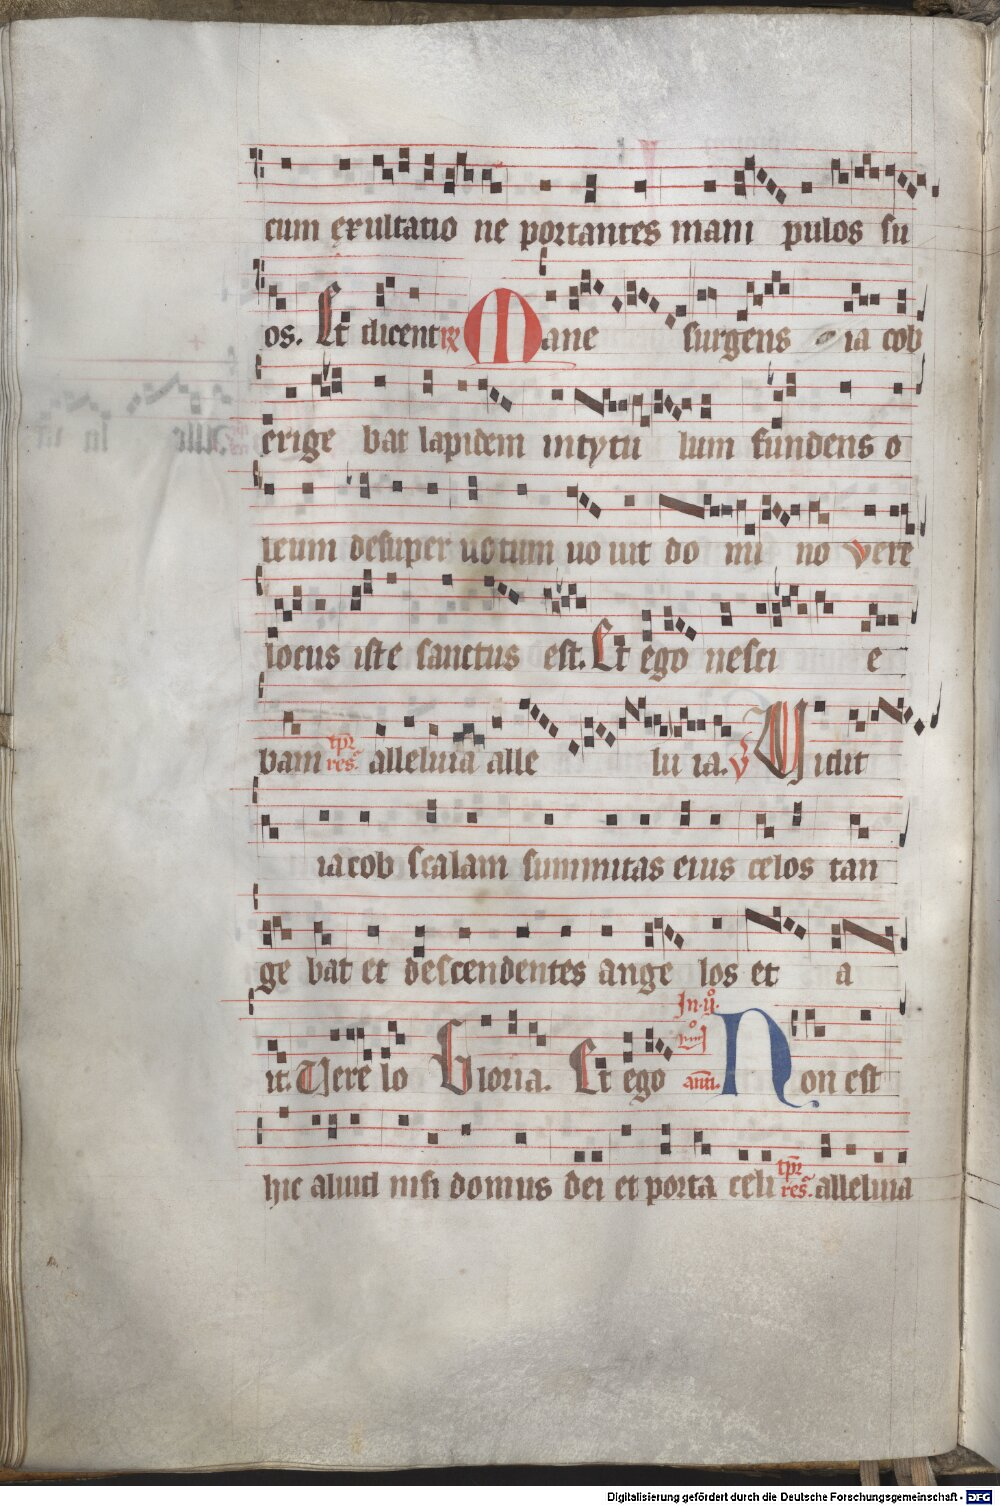 cum exultatio ne portantes mani pulos su
os. Et dicent R Mane surgens ia cob
erige bat lapidem in tytu lum fundens o
leum desuper uotum uo uit do mi no vere
locus iste sanctus est. Et ego nesci e
bam tpr res. alleluia alle lu ia. V Uidit
iacob scalam summitas eius celos tan
ge bat et descendentes ange los et a
it. Vere lo Gloria. Et ego an. Non est
hic aliud nisi domus dei et porta celi tpr res. alleluia
Digitalisierung gefördert durch die Deutsche Forschungsgemeinschaft - DFG